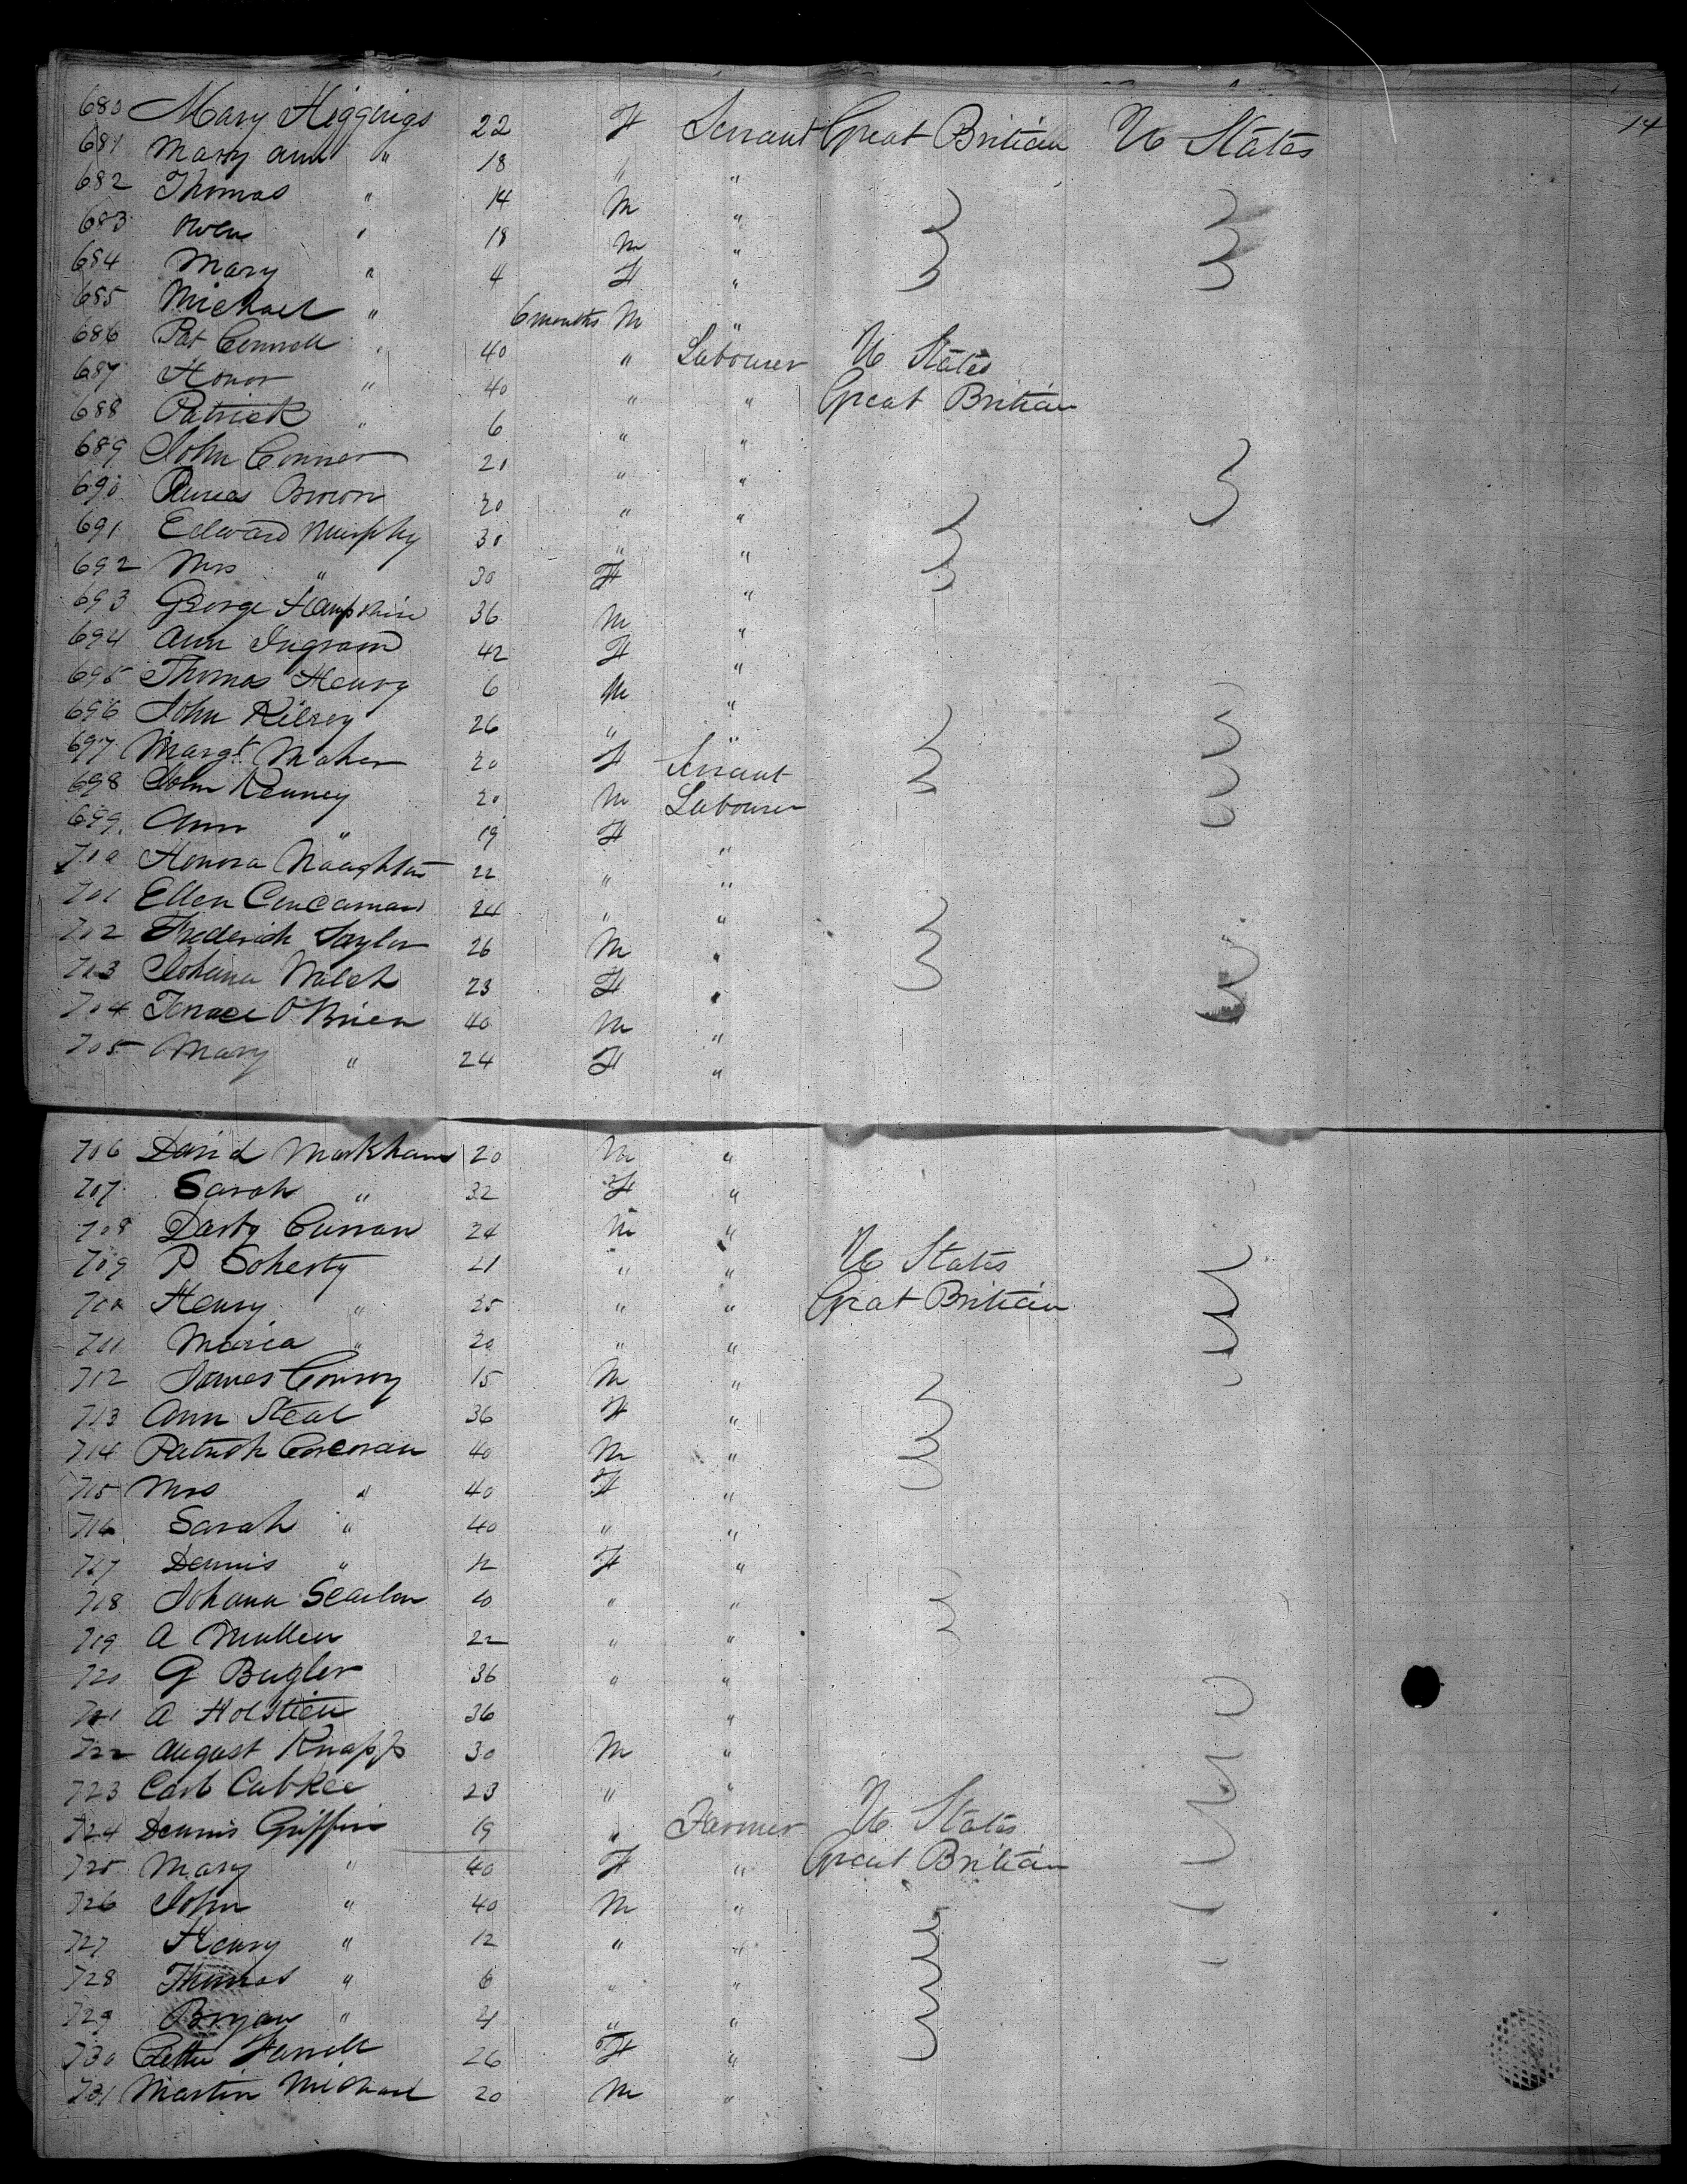 14
680 Mary Higgings 22 F Servant Great Britian U States
681 Mary Ann " 18 " "
682 Thomas " 14 M "
683 Owen " 18 M "
684 Mary " 4 F "
685 Michael " 6 months M "
686 Pat Connell 40 " Labourer U States
687 Honor " 40 " " Great Britian
688 Patrick " 6 " "
689 John Conner 21 " "
690 Brown 20 " "
691 Edward Murphy 30 " "
692 Mrs " 30 F "
693 George Hampshire 36 M "
694 Ann Ingram 42 F "
695 Thomas Henry 6 M "
696 John Kilroy 26 " "
697 Margt Maher 20 F Servant
698 John Kenney 20 M Labourer
699 Ann " 19 F "
700 Honora Naughton 22 " "
701 Ellen 24 " "
702 Frederick Taylor 26 M "
703 Johana Walsh 23 F "
704 O'Brien 40 M "
705 Mary " 24 F "
706 David Markham 20 M "
707 Sarah " 32 F "
708 Darby Curran 24 M "
709 P Doherty 21 " " U States
710 Henry " 25 " " Great Britian
711 Maria " 20 " "
712 James Conroy 15 M "
713 Ann Steal 36 F "
714 Patrick Corcoran 40 M "
715 Mrs " 40 F "
716 Sarah " 40 " "
717 Dennis " F "
718 Johana Scanlon " "
719 A Mullen 22 " "
720 G Bugler 36 " "
721 A Holstien 36 "
722 August Knapp 30 M "
723 Carl 23 " "
724 Dennis Griffin 19 " Farmer U States
725 Mary " 40 F " Great Britian
726 John " 40 M "
727 Henry " 12 " "
728 Thomas " 6 " "
729 Bryan " 4 " "
730 Farrell 26 F "
731 Martin Michael 20 M "